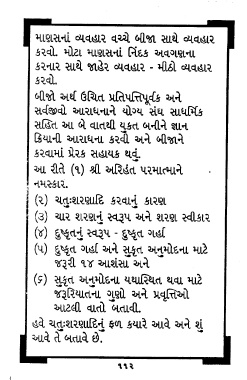 માણસનાં વ્યવહાર વચ્ચે બીજા સાથે વ્યવહાર
કરવો. મોટા માણસનાં નિંદક અવગણના
કરનાર સાથે જાહેર વ્યવહાર - મીઠી વ્યવહાર
કરવો.
બીજો અર્થ ઉચિત પ્રતિપત્તિપૂર્વક અને
સર્વજીવો આરાધનાને યોગ્ય સંઘ સાધર્મિક
સહિત આ બે વાતથી યુક્ત બનીને જ્ઞાન
ક્રિયાની આરાધના કરવી અને બીજાને
કરવામાં પ્રેરક સહાયક થવું.
આ રીતે (૧) શ્રી અરિહંત પરમાત્માને
નમસ્કાર.
(૨) ચતુઃશરણાદિ કરવાનું કારણ
(૩) ચાર શરણનું સ્વરૂપ અને શરણ સ્વીકાર
(૪) દુષ્કૃતનું સ્વરૂપ - દુષ્કૃત ગર્હા
(૫) દુષ્કૃત ગર્હા અને સુકૃત અનુમોદના માટે
જરૂરી ૧૪ આશંસા અને
(૬) સુકૃત અનુમોદના યથાસ્થિત થવા માટે
જરૂરિયાતના ગુણો અને પ્રવૃત્તિઓ
આટલી વાતો બતાવી.
હવે ચતુઃશરણાદિનું ફળ કયારે આવે અને શું
આવે તે બતાવે છે.
૧૧૨